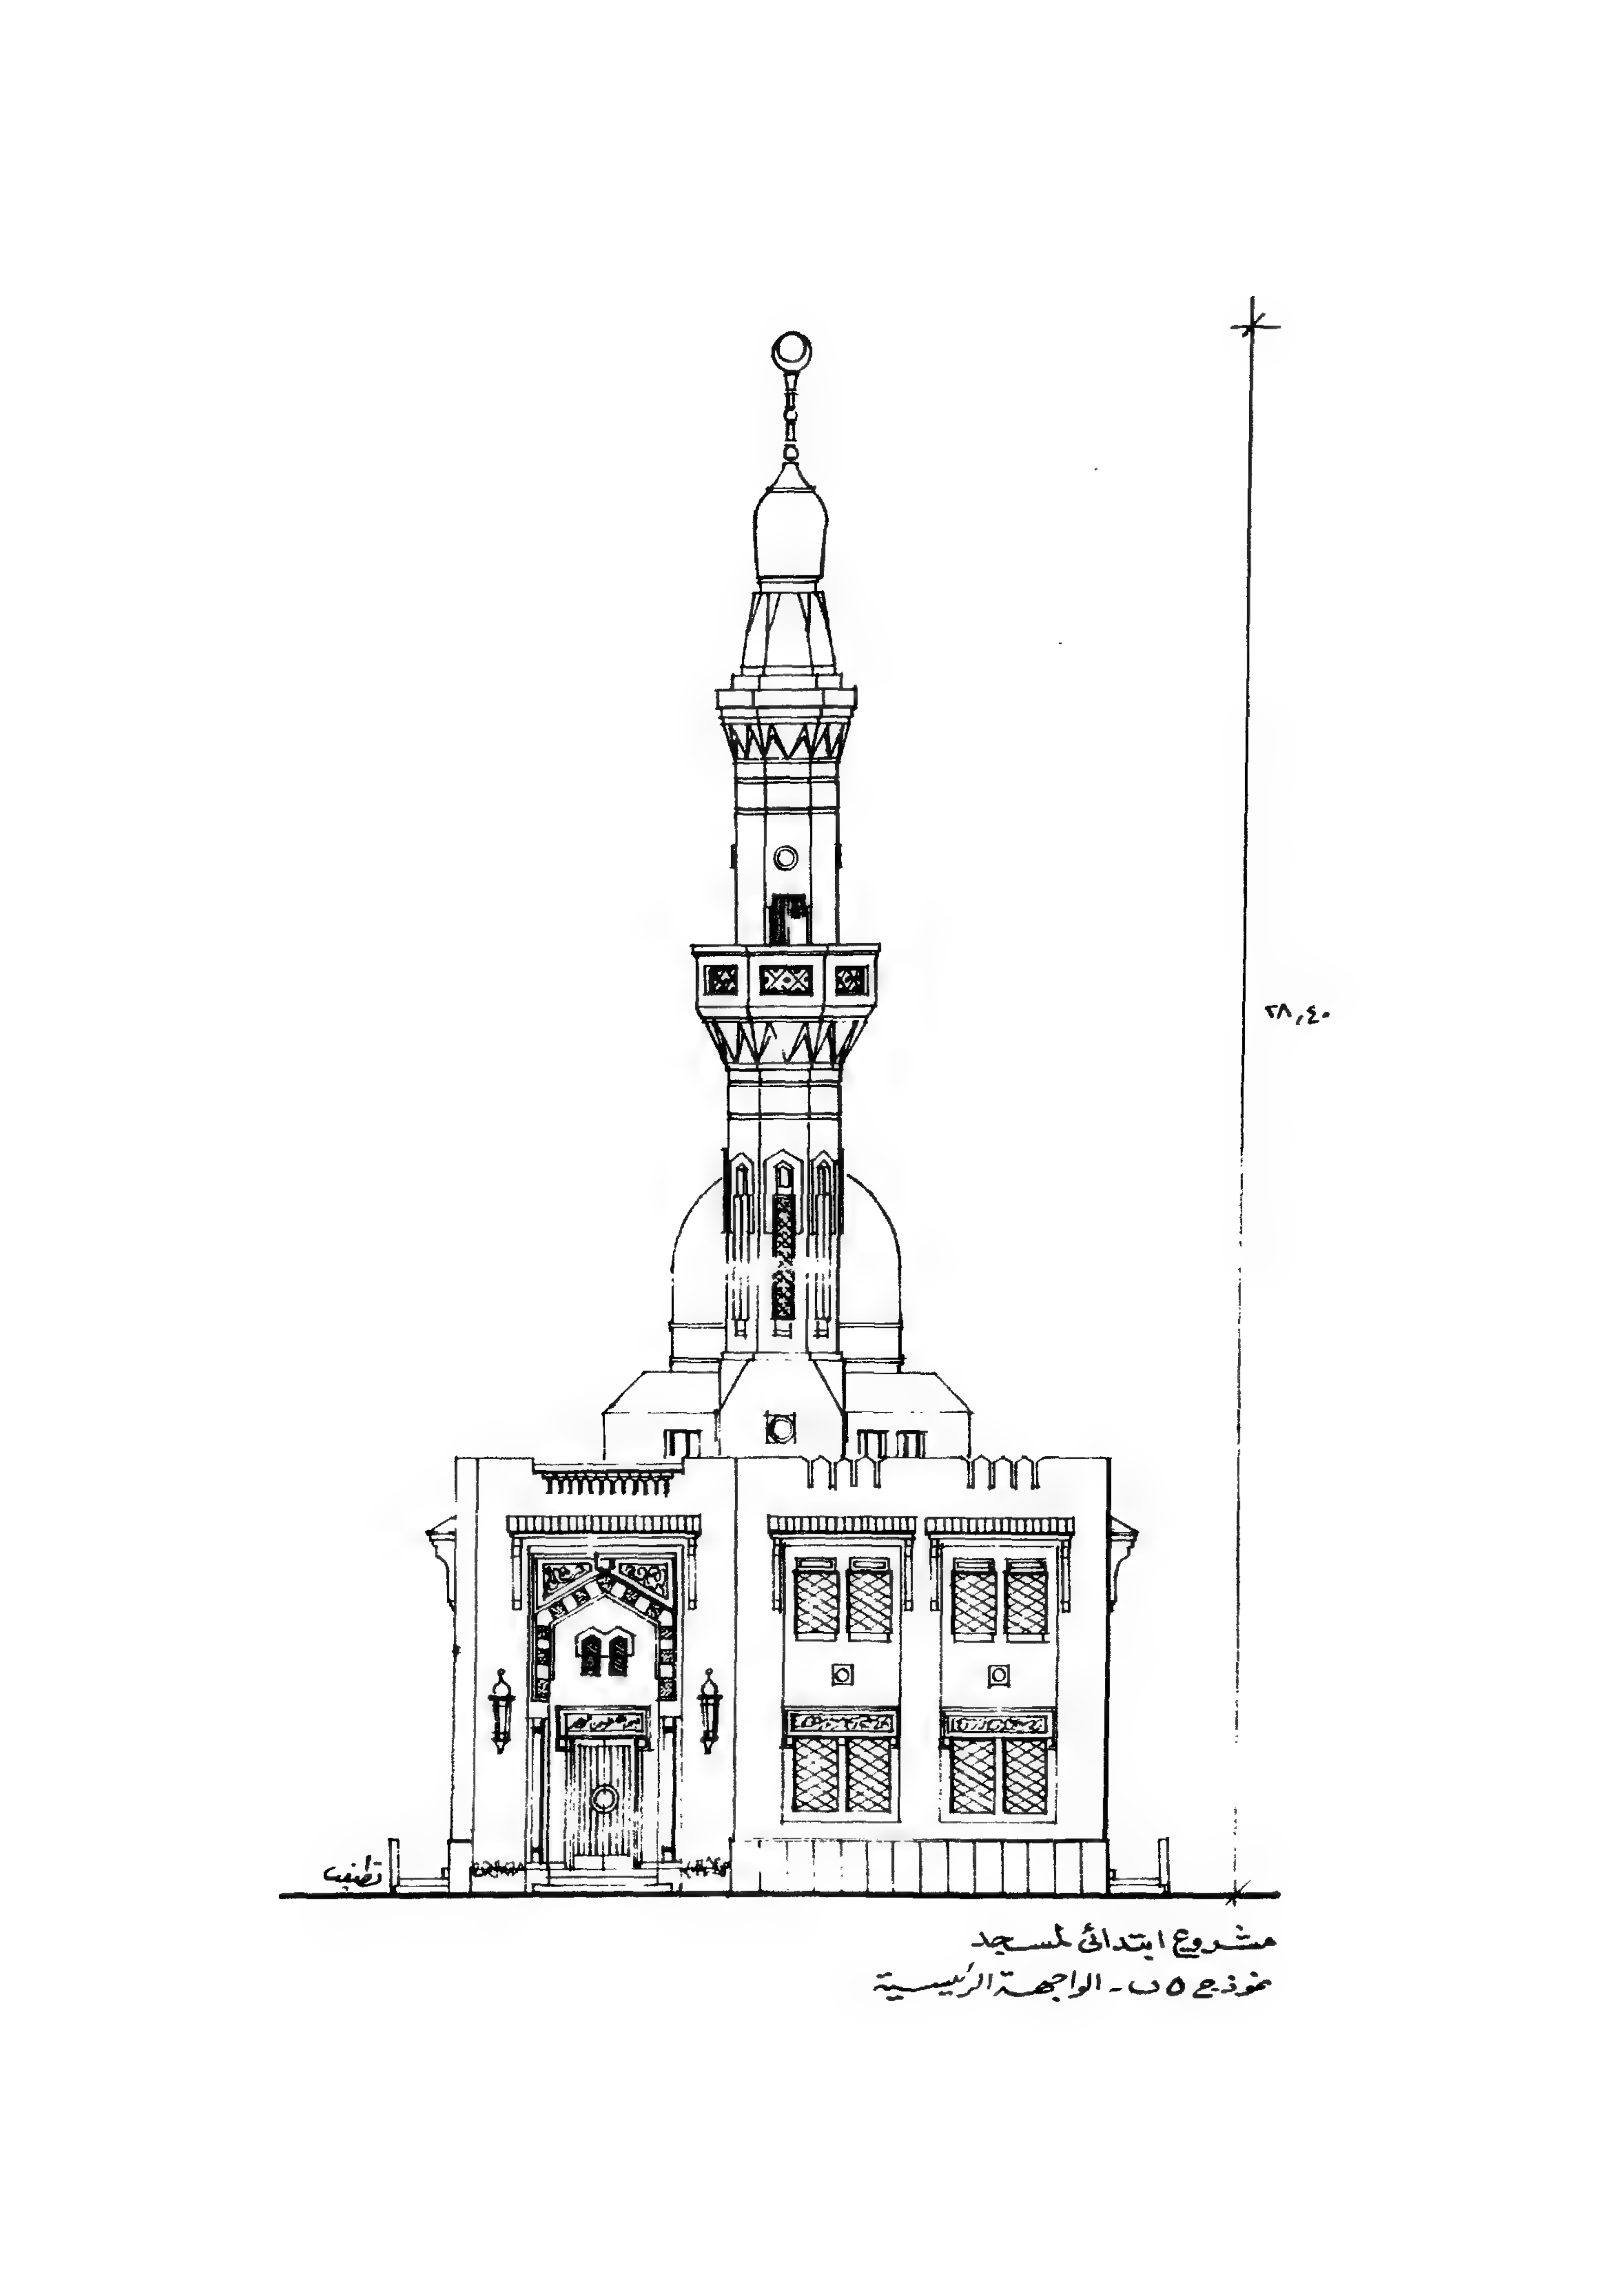 ٢٨,٤٠
مشروع ابتدائى لمسجد
نموذج ٥ ب - الواجهة الرئيسية